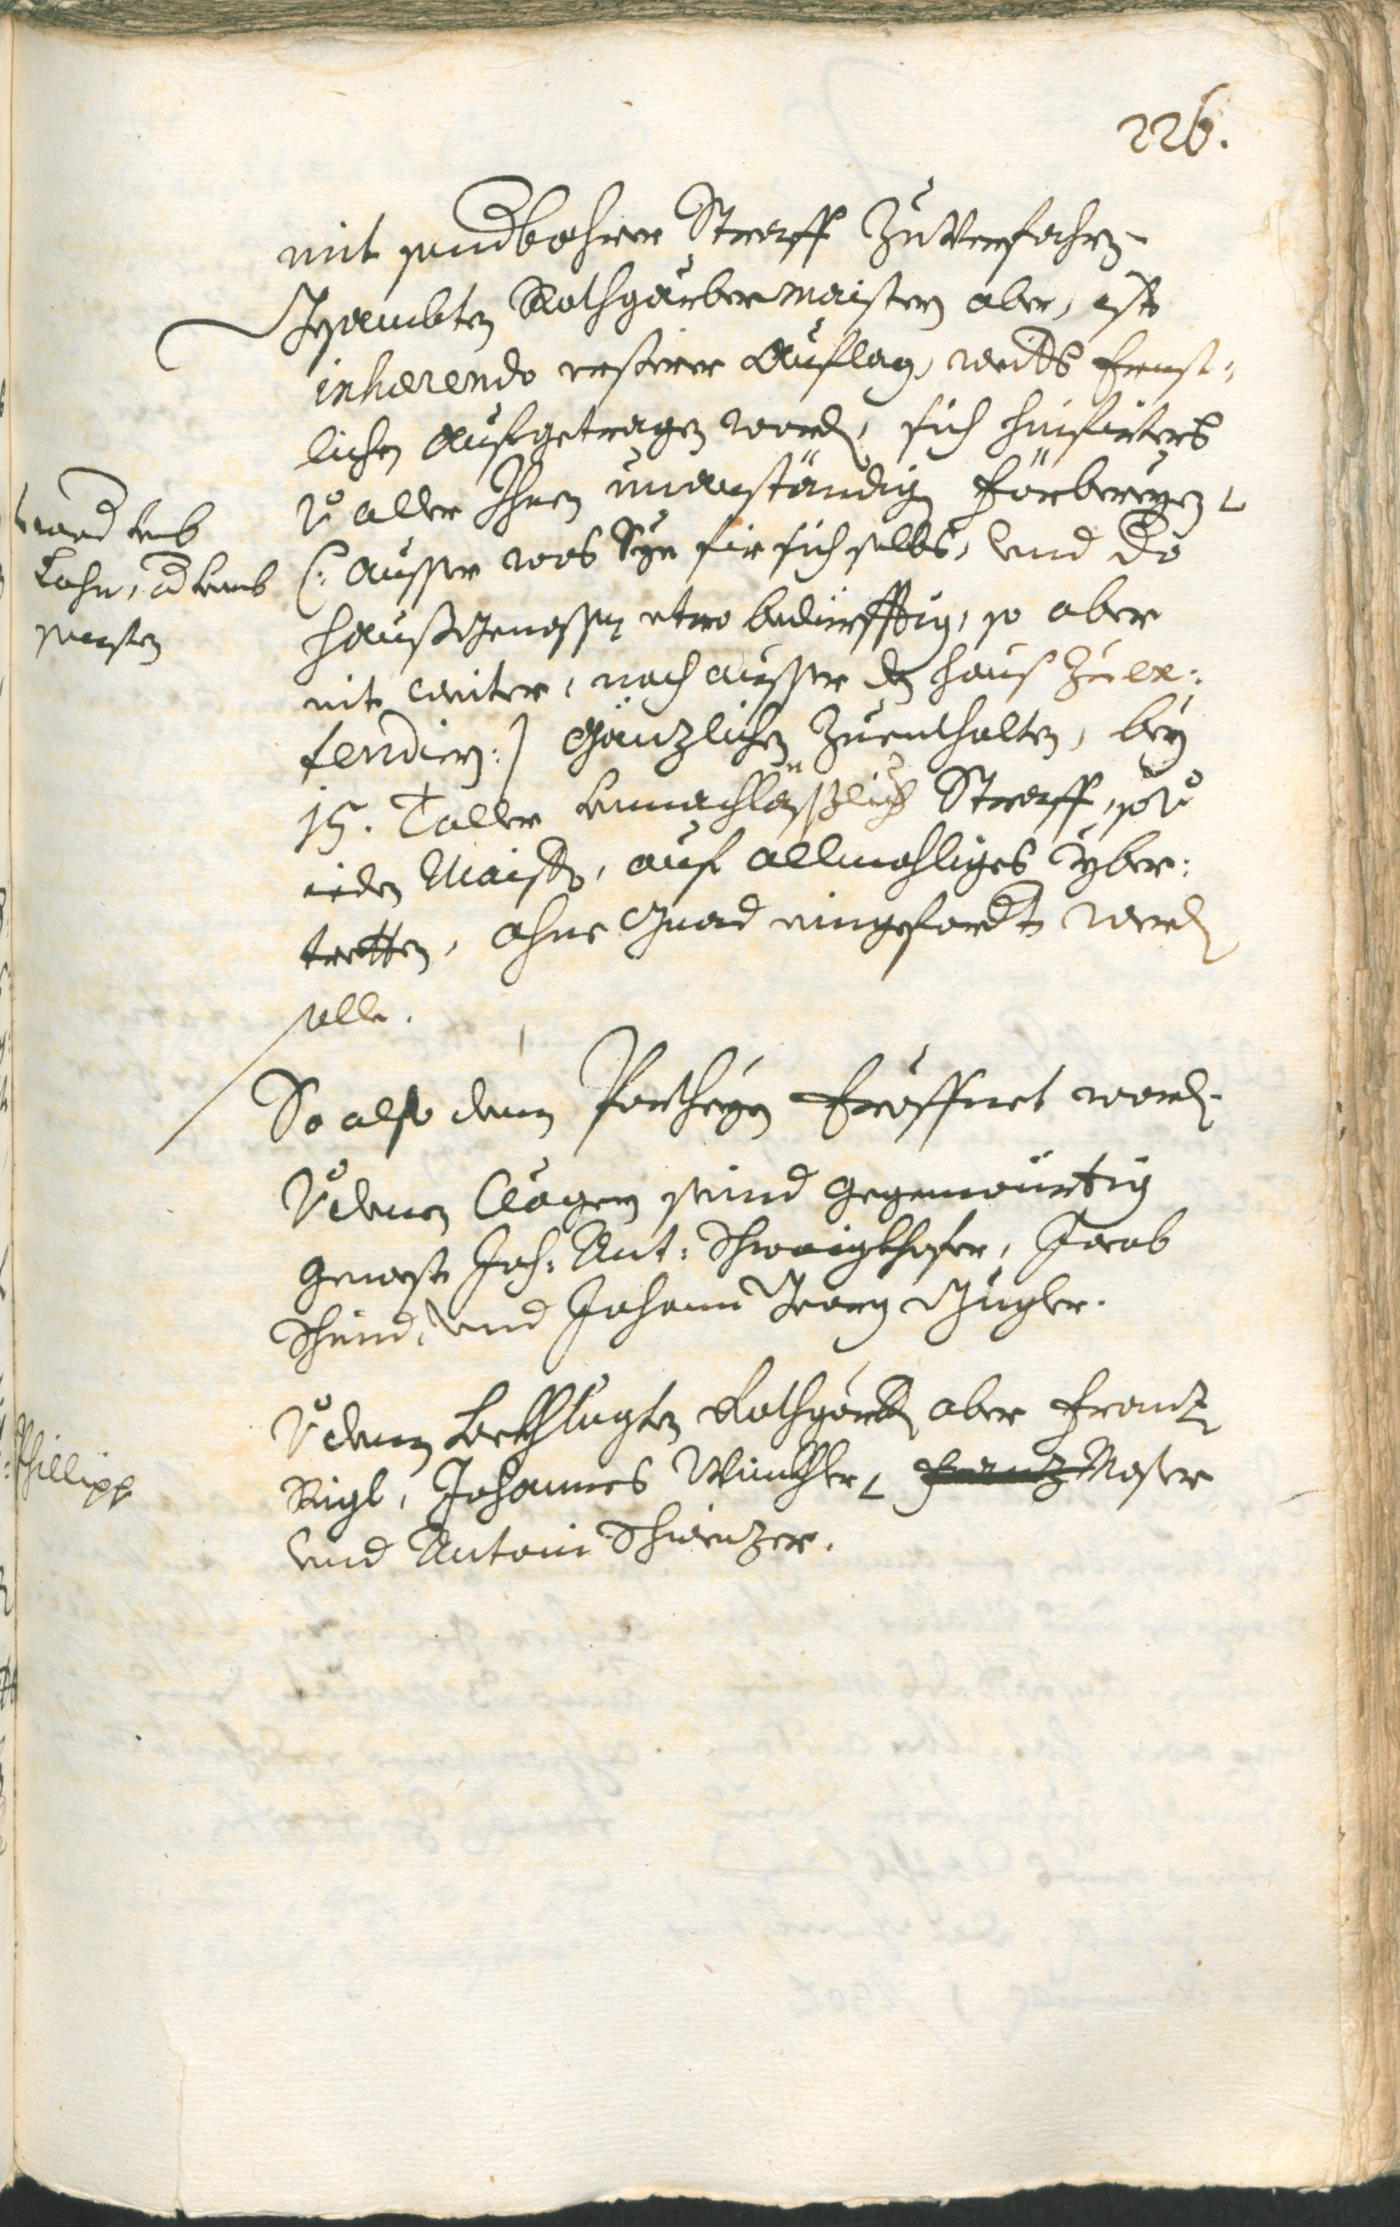 226.
mit sondbahrer Straff zuverfahrn.
Gesambten Rothgärbermaistern aber, ist
inhærendo ersterer Auflag, wid͠s Ernst-
lichen aufgetragen word͠, sich hinfürters
v̊ aller Ihnen unanständig Färbereyen,
(: ausser was Sye für sich selbs, und die
haußgenossen etwo bedürfftig, so aber
nit weiter, noch ausser d͠ haus zu ex-
tendirn :) gänzlichen zuenthalten, bey
15. Taller unnachläßlich Straff, so v̊
ieden Maist͠, auf allmahliges yber-
tretten, ohne Gnad eingefordt͠ werd͠
solle.
So also denen Partheyen Eröffnet word͠.
V̊ denen Clagern seind gegenwürtig
gewest Joh: Ant: Schwaighofer, Jacob
Schmid, und Johann Georg Gugler.
V̊ denen beklagten Rothgärb͠ aber Frantz
Rigl, Johannes Winckhler, Frantz Moser
und Antoni Schwenzer.
Lohn,
sonsten
Phillipp